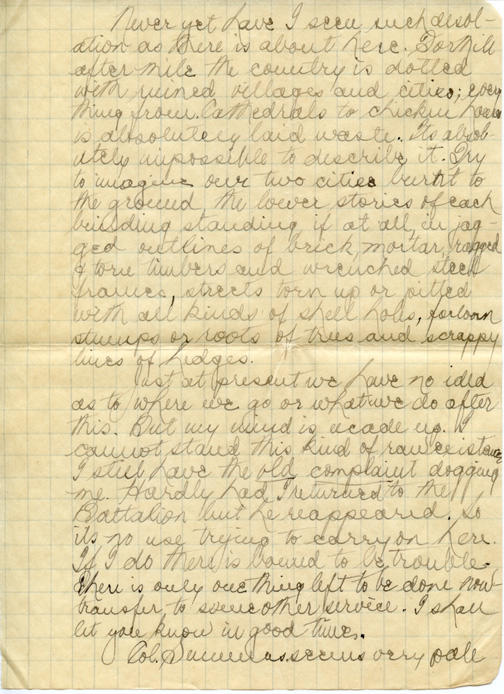 Never yet have I seen such desol-
ation as there is about here. For mile
after mile the country is dotted
with ruined villages and cities; every
thing from Cathedrals to chicken houses
is absolutely laid waste. Its absol-
utely impossible to describe it. Try
to imagine our two cities burnt to
the ground the lower stories of each
building standing if at all in jag-
ged outlines of brick mortar, ragged
& torn timbers and wrenched steel
frames, streets torn up or pitted
with all kinds of shell holes, forlorn
stumps or roots of trees and scrappy
lines of hedges.
Just at present we have no idea
as to where we go or what we do after
this. But my mind is made up. I
cannot stand this kind of raw existence
I still have the old complaint dogging
me. Hardly had I returned to the
Battalion but he reappeared. So
its no use trying to carry on here.
If I do there is bound to be trouble.
There is only one thing left to be done now
transfer to some other service. I shall
let you know in good time.
Col. seems very pale